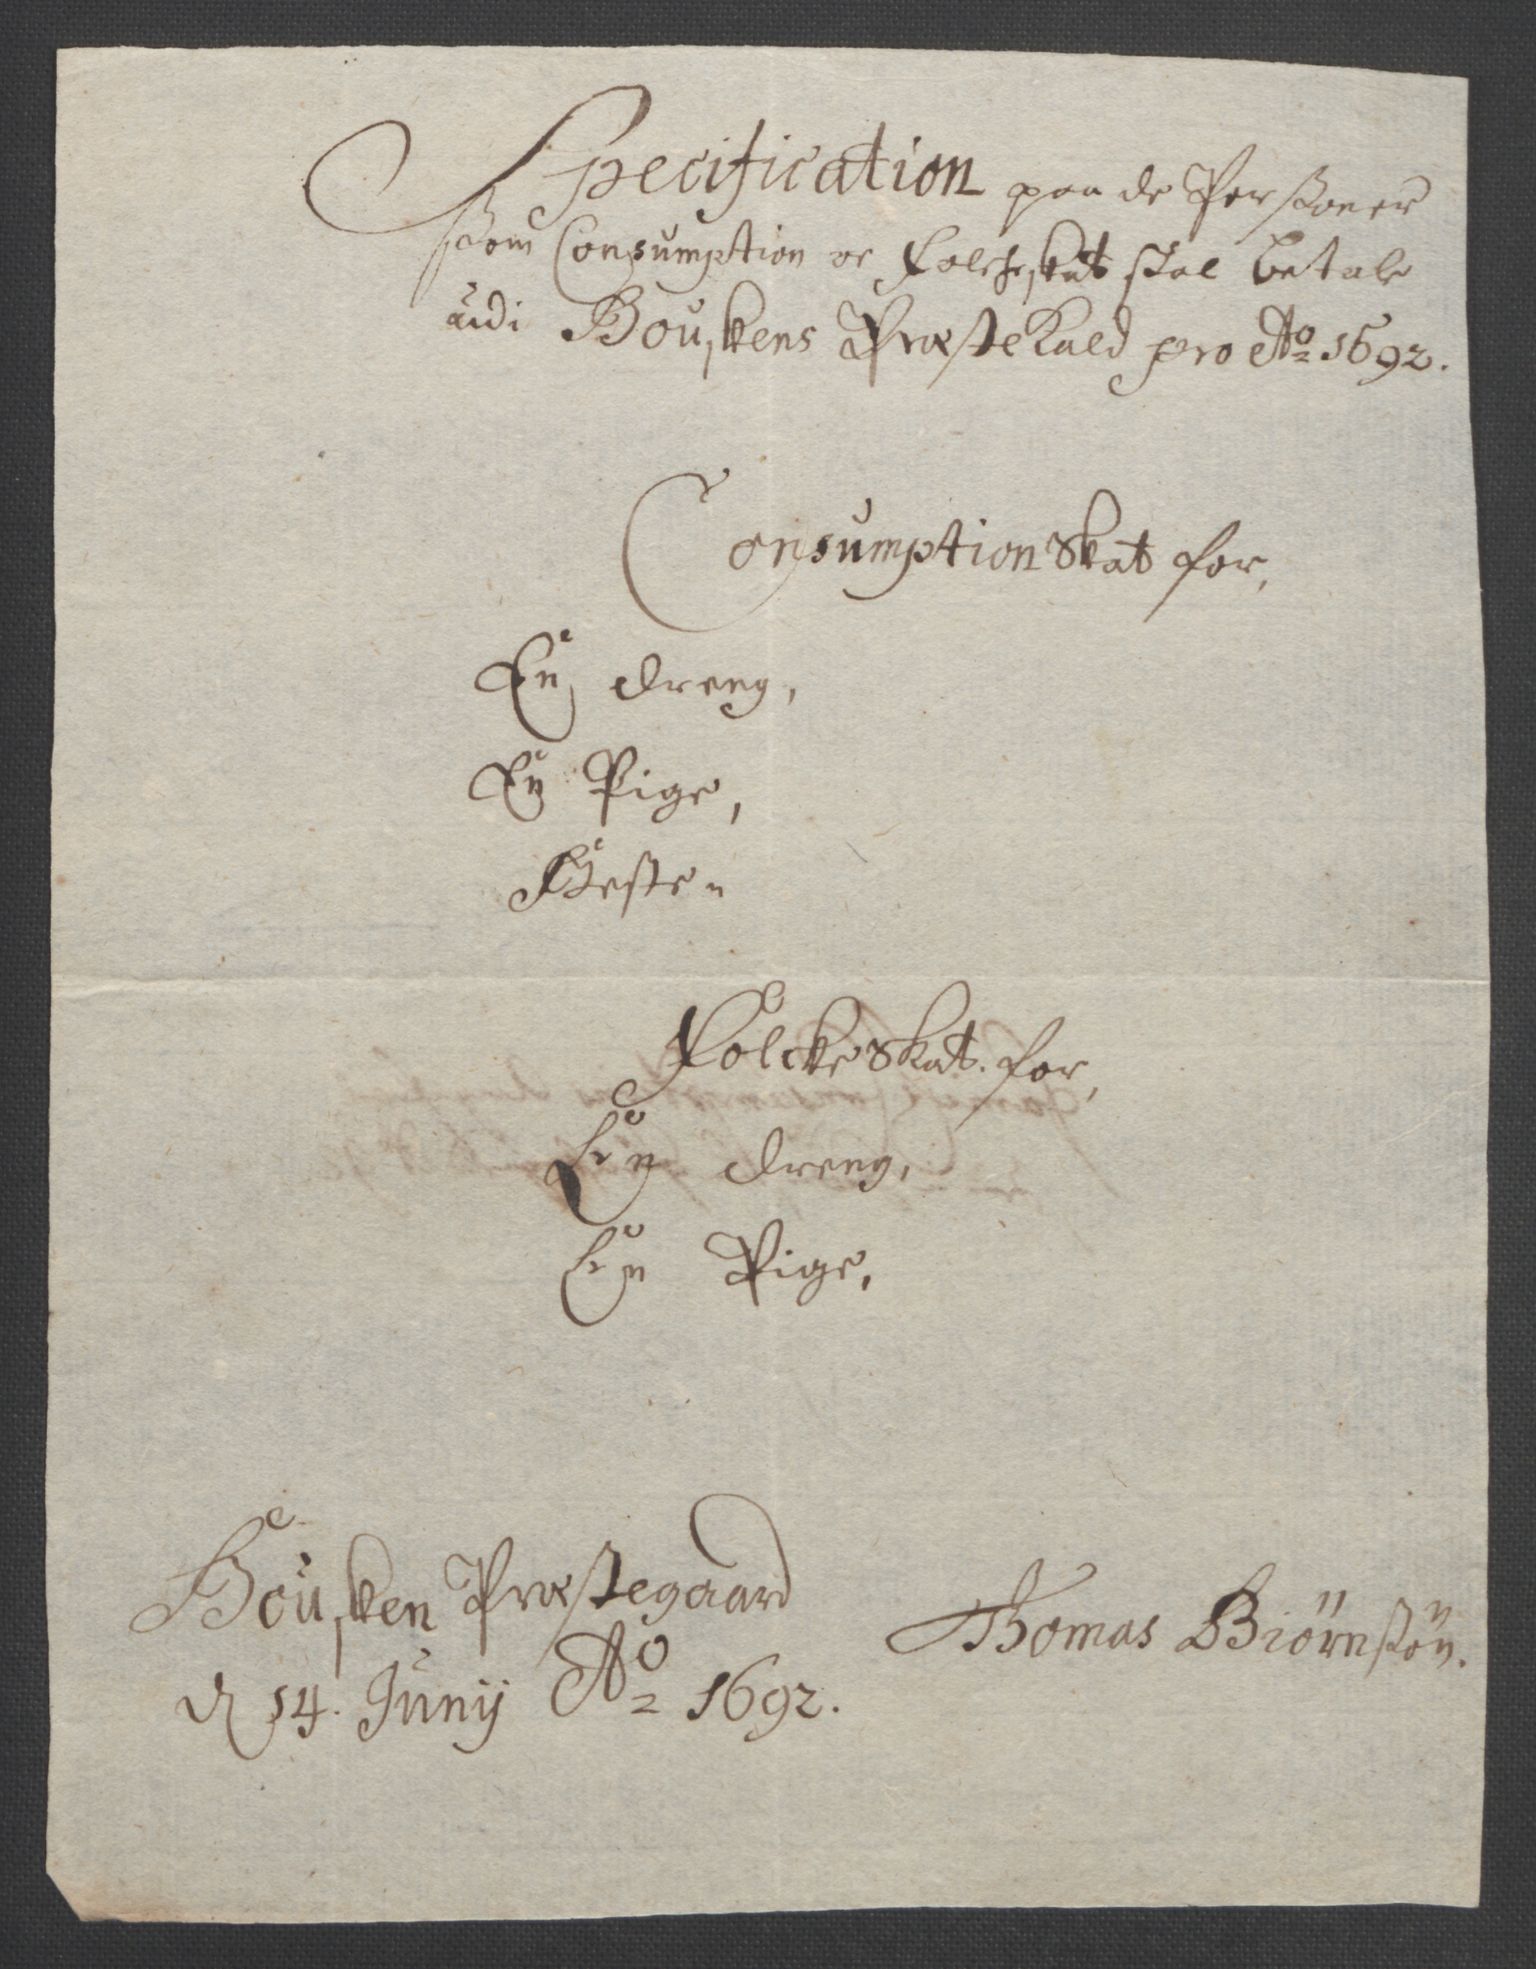 Specification paa de Persßoner
ßom Consumption oc Folcheskat skal betale
udi Bouskens Præstekald pro Ao 1692.
Consumption Skat for,
En dreng,
En Pige,
Heste
Folcke Skat. for,
Een dreng,
Een Pige,
Bousken Præstegaard
d 14. Junij Ao 1692.
Thomas Biörnßön.